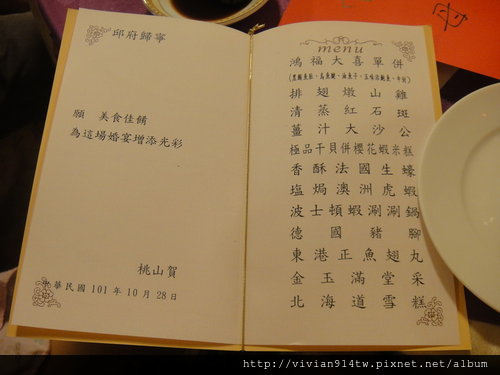 邱府歸寧
願 美食佳餚
為這場婚宴增添光彩
桃山賀
中華民國 101 年 10 月 28 日
menu
鴻福大喜單併
排翅燉山雞
清蒸紅石斑
薑汁大沙公
極品干貝併櫻花蝦米糕
香酥法國生蠔
塩焗澳洲虎蝦
波士頓蝦涮涮鍋
德國豬腳
東港正魚翅丸
金玉滿堂采
北海道雪糕
http://vivian914tw.pixnet.net/album